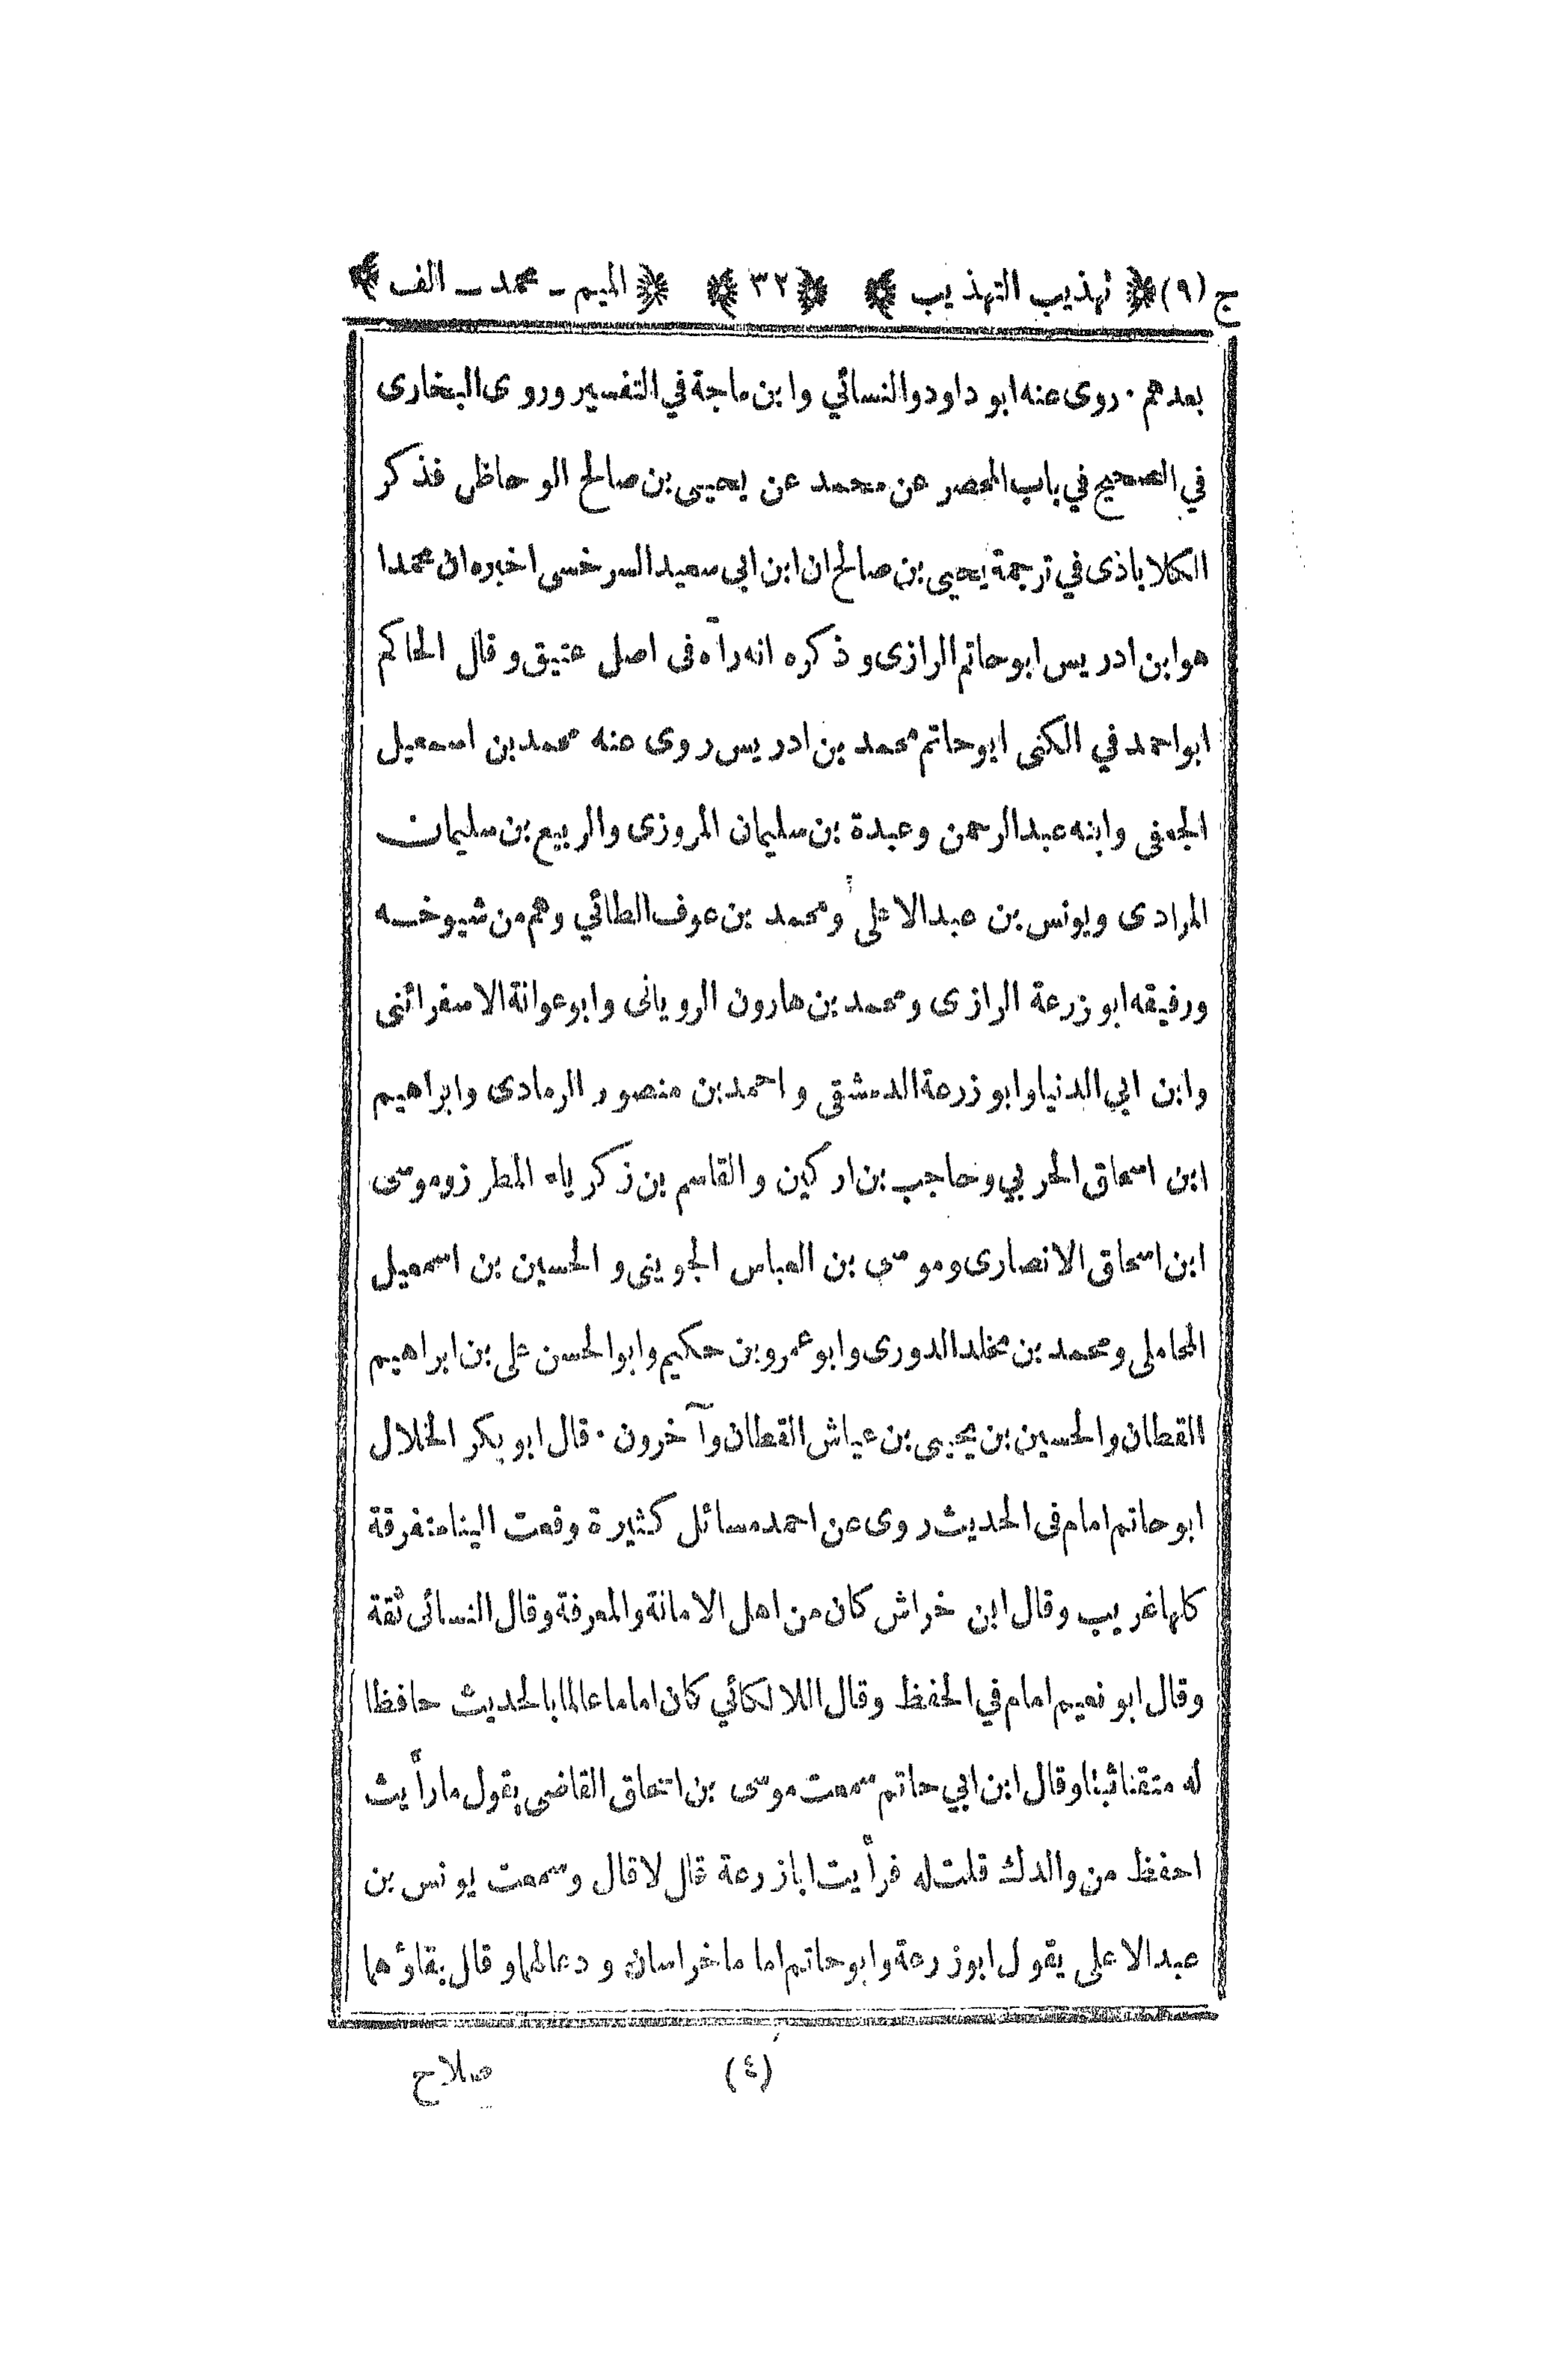 ج (٩) تهذيب التهذيب ٣٢ الميم ـ محمد ـ الف
بعدهم ٠ روى عنه ابو داود والنسائي وابن ماجة في التفسير وروى البخارى
في الصحيح في باب المحصر عن محمد عن يحيى بن صالح الوحاظى فذكر
الكلاباذى في ترجمة يحيى بن صالح ان ابن ابي سعيد السرخسى اخبره ان محمدا
هو ابن ادريس ابو حاتم الرازى وذكره انه رآه فى اصل عتيق وقال الحاكم
ابو احمد في الكنى ابو حاتم محمد بن ادريس روى عنه محمد بن اسمعيل
الجعفى وابنه عبد الرحمن وعبدة بن سليمان المروزى والربيع بن سليمان
المرادى ويونس بن عبد الاعلى ومحمد بن عوف الطائي وهم من شيوخه
ورفيقه ابو زرعة الرازى ومحمد بن هارون الرويانى وابو عوانة الاسفرائنى
وابن ابي الدنيا وابو زرعة الدمشقى واحمد بن منصور الرمادى وابراهيم
ابن اسحاق الحربي وحاجب بن اركين والقاسم بن زكرياء المطرز وموسى
ابن اسحاق الانصارى وموسى بن العباس الجوينى والحسين بن اسمعيل
المحاملى ومحمد بن مخلد الدورى وابو عمرو بن حكيم وابو الحسن على بن ابراهيم
القطان والحسين بن يحيى بن عياش القطان وآخرون ٠ قال ابو بكر الخلال
ابو حاتم امام فى الحديث روى عن احمد مسائل كثيرة وقعت الينا متفرقة
كلها غريب وقال ابن خراش كان من اهل الامانة والمعرفة وقال النسائى ثقة
وقال ابو نعيم امام في الحفظ وقال اللالكائي كان اماما عالما بالحديث حافظا
له متقنا ثبتا وقال ابن ابي حاتم سمعت موسى بن اسحاق القاضى يقول ما رأيت
احفظ من والدك قلت له فرأيت ابا زرعة قال لا قال وسمعت يونس بن
عبد الاعلى يقول ابو زرعة وابو حاتم اماما خراسان ودعا لهما وقال بقاؤهما
(٤) صلاح